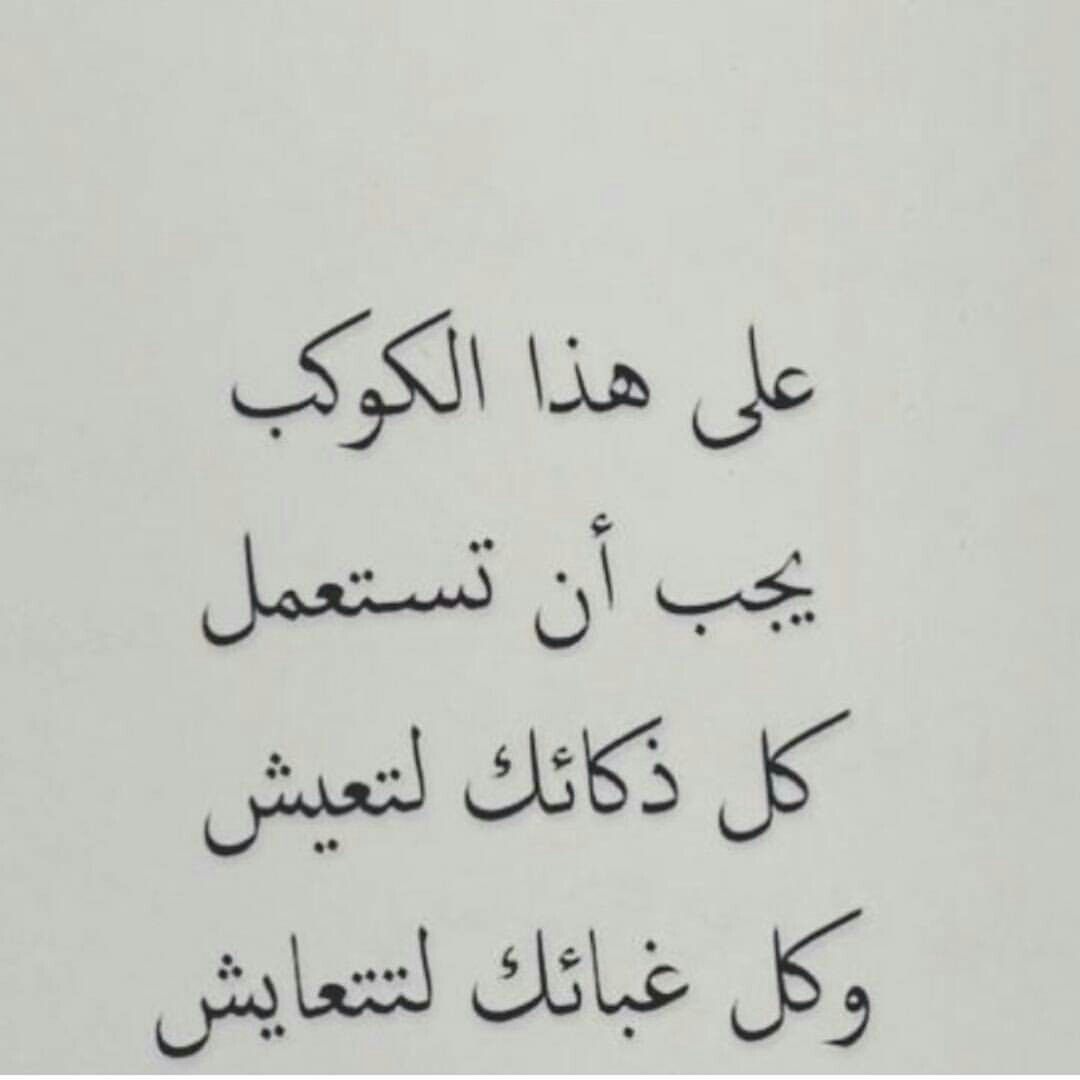 على هذا الكوكب
يجب أن تستعمل
كل ذكائك لتعيش
وكل غبائك لتتعايش